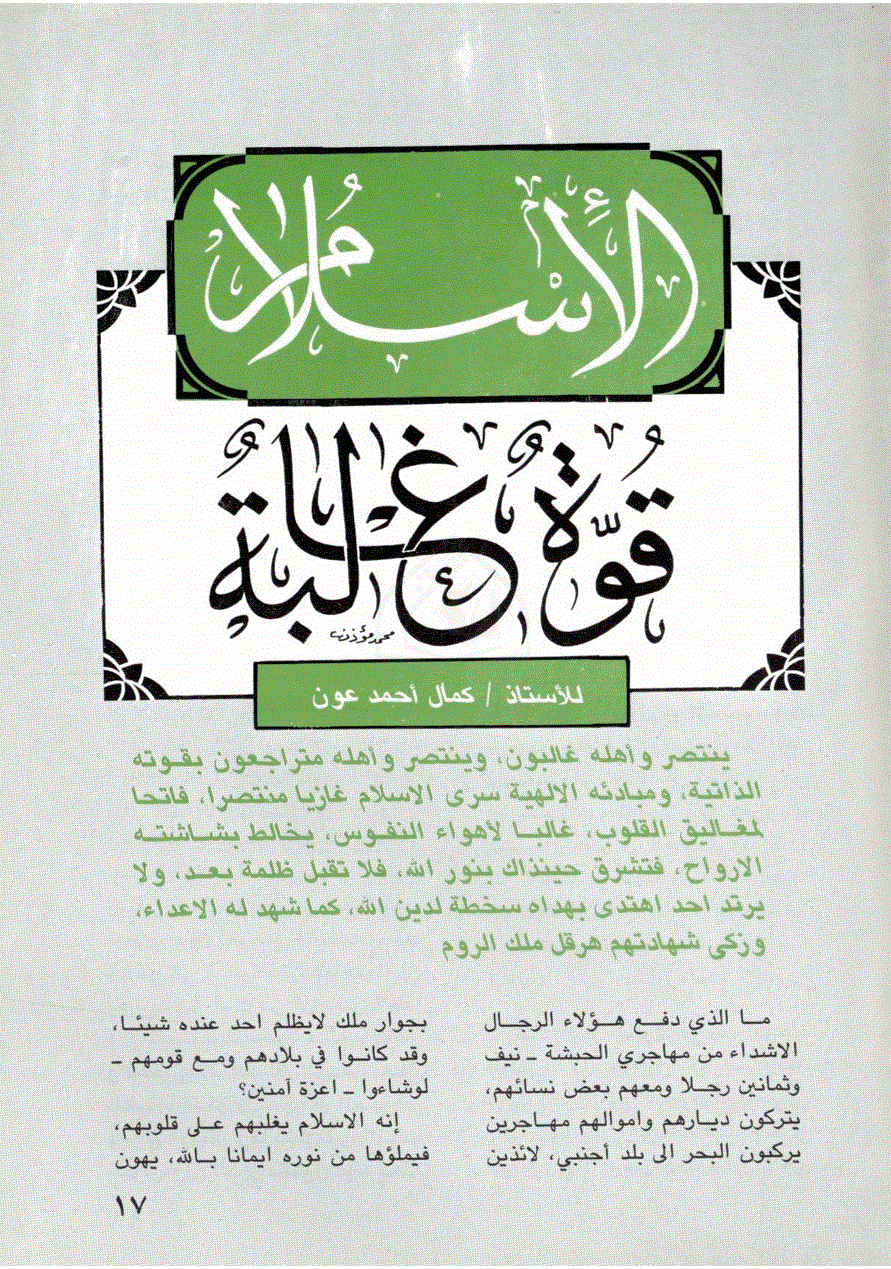 الأسلام
قوة غلابة
محمد مؤذن
للأستاذ / كمال أحمد عون
ينتصر وأهله غالبون، وينتصر وأهله متراجعون بقوته
الذاتية، ومبادئه الالهية سرى الاسلام غازيا منتصرا، فاتحا
لمغاليق القلوب، غالبا لأهواء النفوس، يخالط بشاشته
الارواح، فتشرق حينذاك بنور الله، فلا تقبل ظلمة بعد، ولا
يرتد احد اهتدى بهداه سخطة لدين الله، كما شهد له الاعداء،
وزكى شهادتهم هرقل ملك الروم
ما الذي دفع هؤلاء الرجال
الاشداء من مهاجري الحبشة - نيف
وثمانين رجلا ومعهم بعض نسائهم،
يتركون ديارهم واموالهم مهاجرين
يركبون البحر الى بلد أجنبي، لائذين
بجوار ملك لايظلم احد عنده شيئا،
وقد كانوا في بلادهم ومع قومهم -
لوشاءوا - اعزة آمنين؟
إنه الاسلام يغلبهم على قلوبهم،
فيملؤها من نوره ايمانا بالله، يهون
١٧